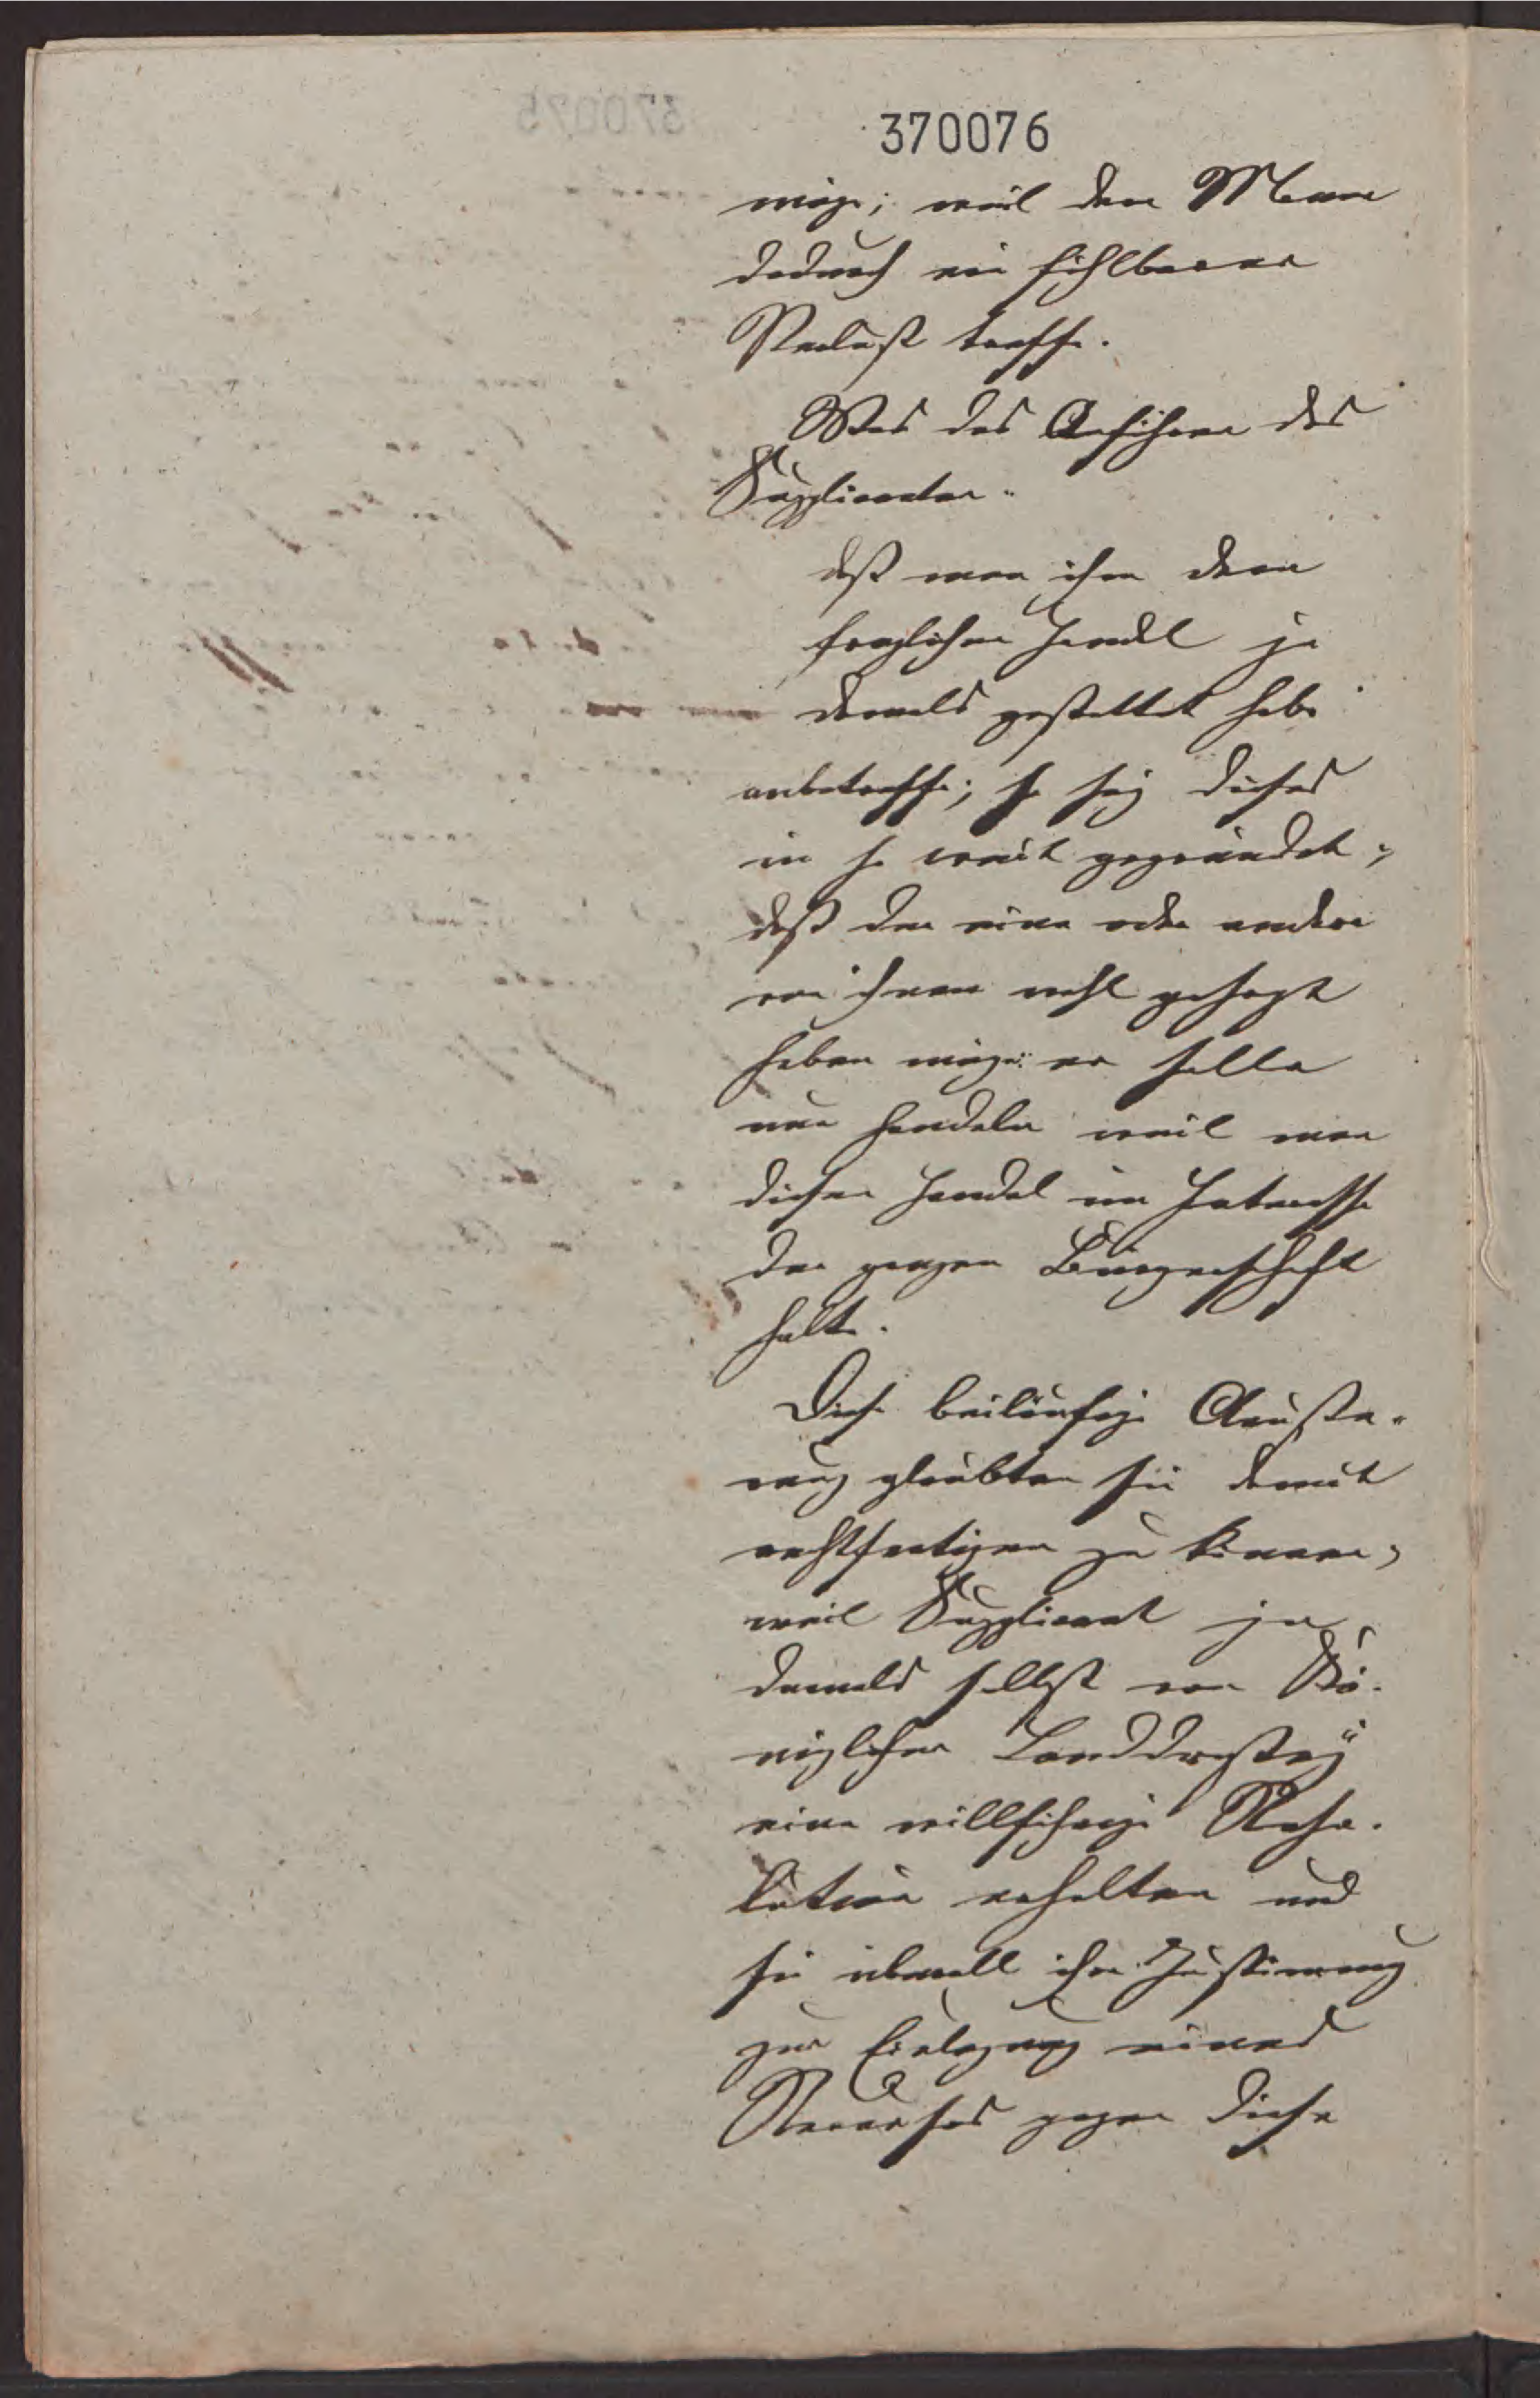 370076
möge; weil den Mann
dadurch ein fühlbarer
Verlust treffe.
Was das Anführen des
Supplicanten:
daß man ihm den
fraglichen Handel ja
damals gestattet habe
anbetreffe; so sey dieses
in so weit gegründet,
daß der eine oder andere
von ihnen wohl gesagt
haben möge: er solle
nur handeln weil man
diesen Handel im Interesse
der ganzen Bürgerschaft
halte.
Diese beiläufige Aeuße-
rung glaubten sie damit
rechtfertigen zu können,
weil Supplicant ja
damals selbst von Kö-
niglicher Landdrostey
eine willfährige Reso-
lution erhalten und
sie überall ihre Zustimmung
zur Einlegung eines
Recurses gegen diese